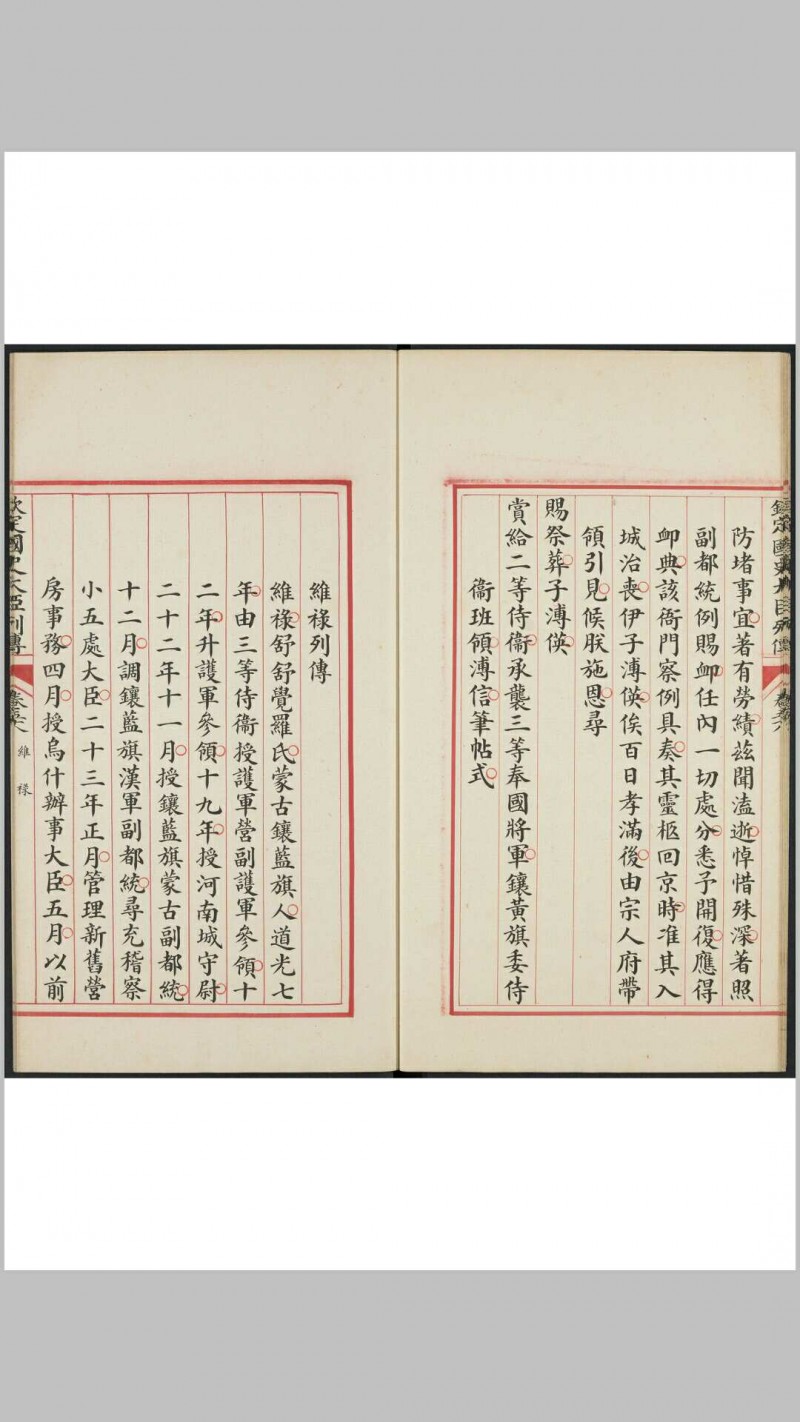 防堵事宜著有勞績茲聞溘逝悼惜殊深著照
副都統例賜卹任內一切處分悉予開復應得
卹典該衙門察例具奏其靈柩回京時准其入
城治喪伊子溥俁百日孝滿後由宗人府帶
領引見候朕施恩尋
賜祭葬子溥
賞給二等侍衞承襲三等奉國將軍鑲黃旗委侍
衞班領溥信筆帖式
維祿列傳
維祿舒舒覺羅氏蒙古鑲藍旗人道光七
年由三等侍衞授護軍營副護軍參領十
二年升護軍參領十九年授河南城守尉
二十二年十一月授鑲藍旗蒙古副都統
十二月調鑲藍旗漢軍副都統尋充稽察
小五處大臣二十三年正月管理新舊營
房事務四月授烏什辦事大臣五月以前
欽定國史大臣列傳
維祿